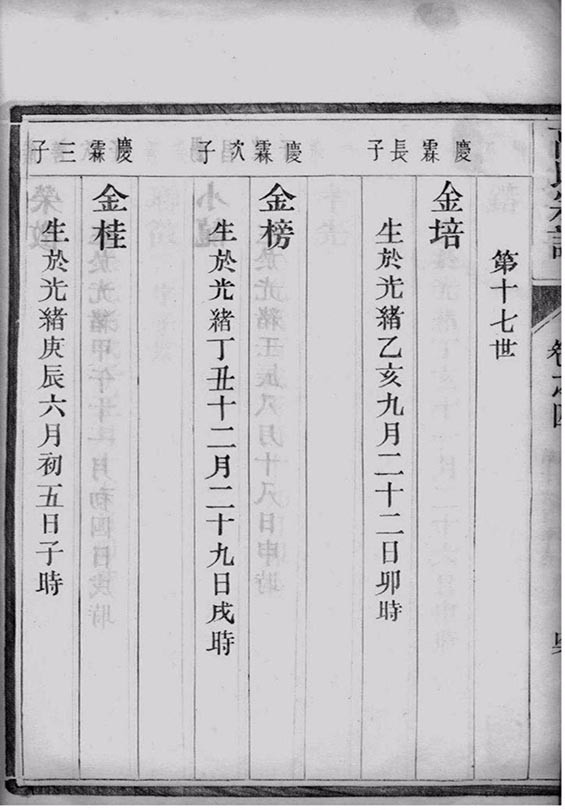 第十七世
慶霖長子
金培
生於光緒乙亥九月二十二日卯時
慶霖次子
金榜
生於光緒丁丑十二月二十九日戌時
慶霖三子
金桂
生於光緒庚辰六月初五日子時